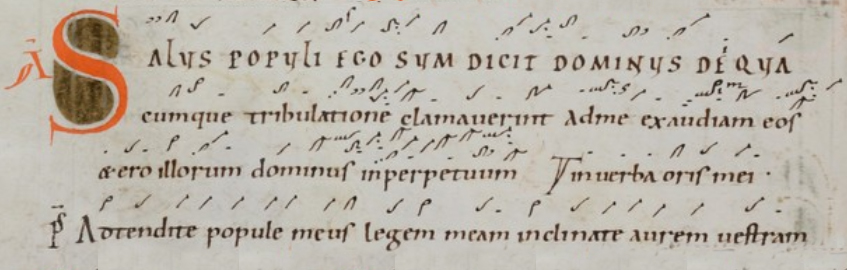 A SALUS POPULI EGO SUM DICIT DOMINUS DE QUA
cumque tribulatione clamauerint adme exaudiam eos
& ero illorum dominus inperpetuum Inuerba oris mei ·
Ps Adtendite popule meus legem meam inclinate aurem uestram